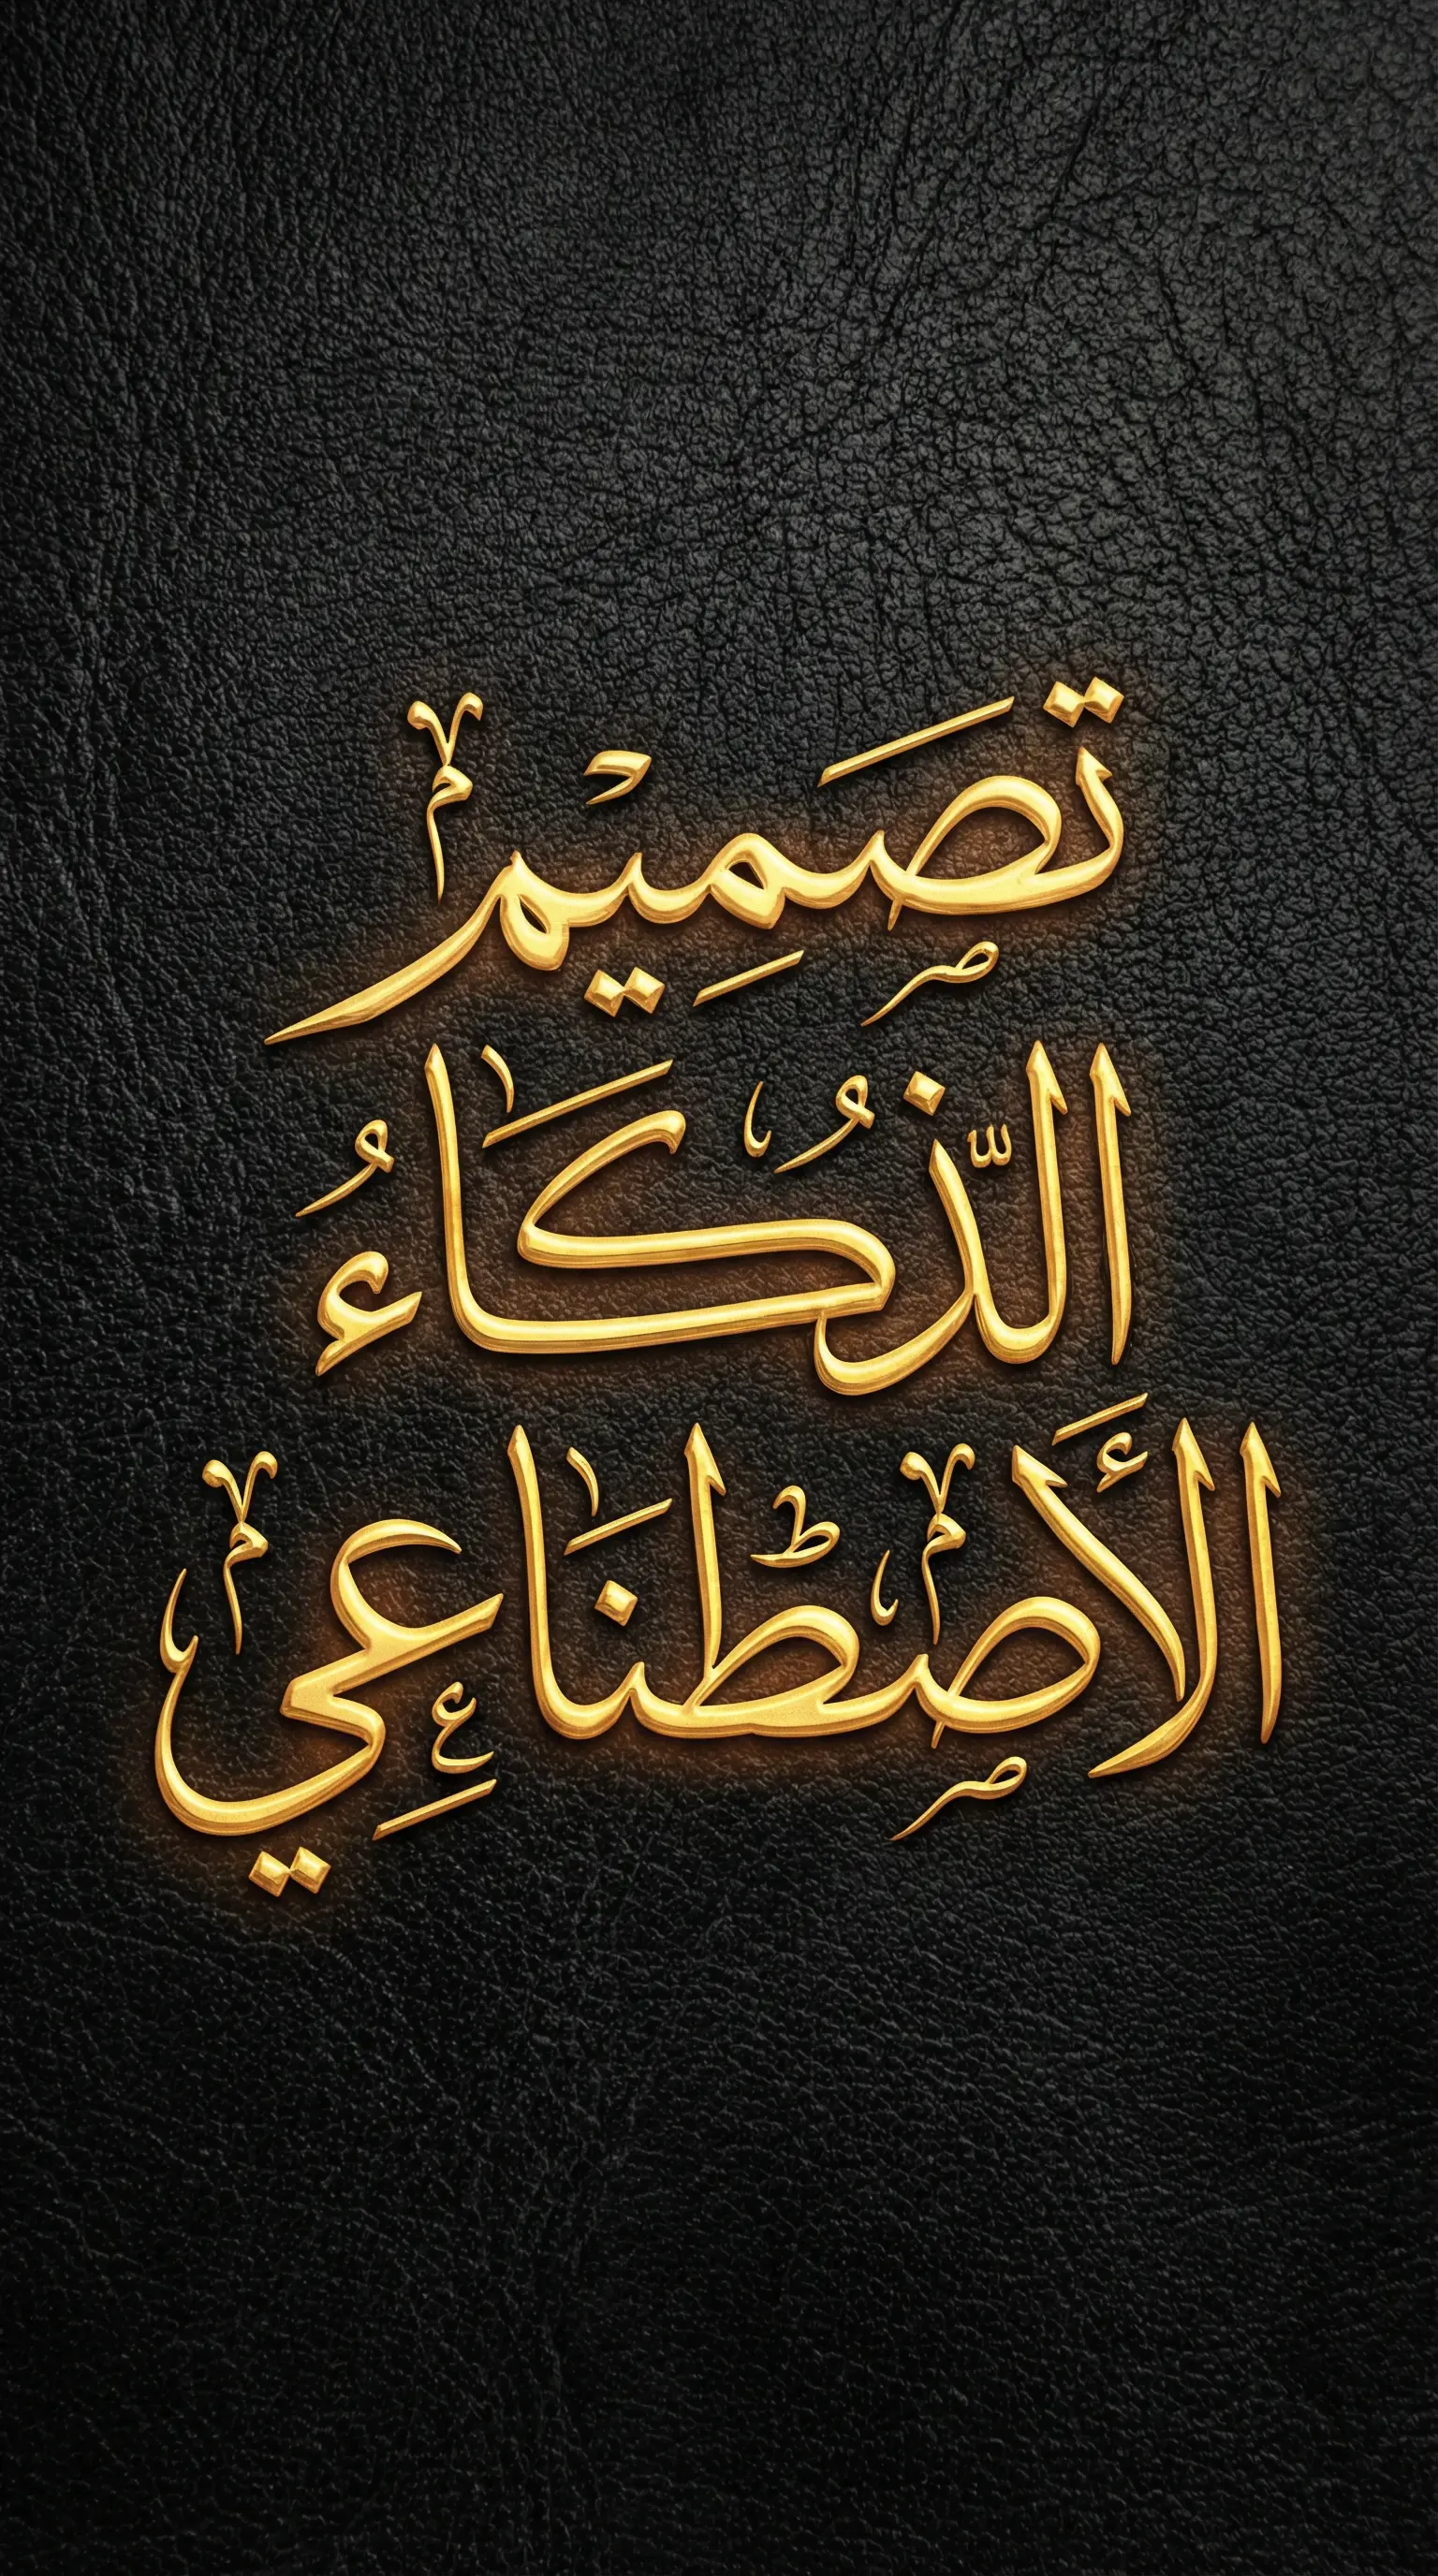 تَصَمِيْم
الذَّكَاءُ
الأَصْطِنَاعِي